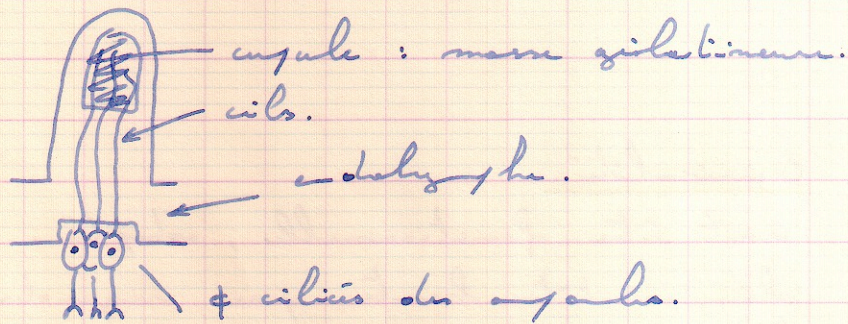 cupule : masse gélatineuse.
cils.
endolymphe.
¢ ciliées des ampoules.